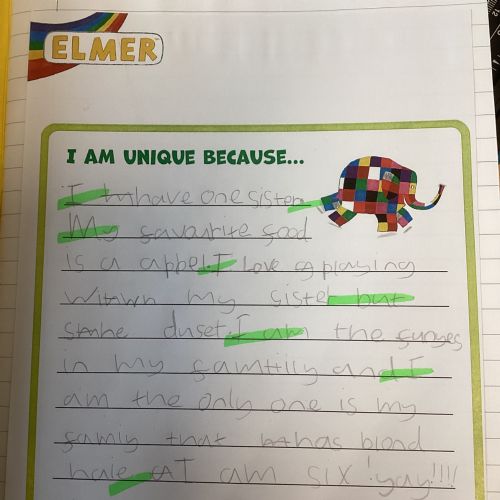 ELMER
I AM UNIQUE BECAUSE...
I have one sister.
My favourite food
is a appel. I love playing
with my sister but
she duset. I am the
in my family and I
am the only one is my
famly that has blond
hale. I am six yay!!!!